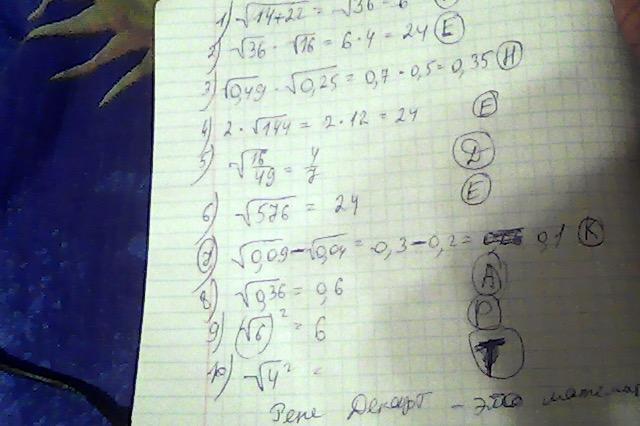 1) √14+22 = √36 = 6
2) √36 · √16 = 6 · 4 = 24 Е
3) √0,49 · √0,25 = 0,7 · 0,5 = 0,35 Н
4) 2 · √144 = 2 · 12 = 24 Е
5) √16/49 = 4/7 Д
6) √576 = 24 Е
7) √0,09 - √0,04 = 0,3 - 0,2 = 0,1 К
8) √0,36 = 0,6 А
9) (√6)² = 6 Р
10) √4² = Т
Рене Декарт - это матема